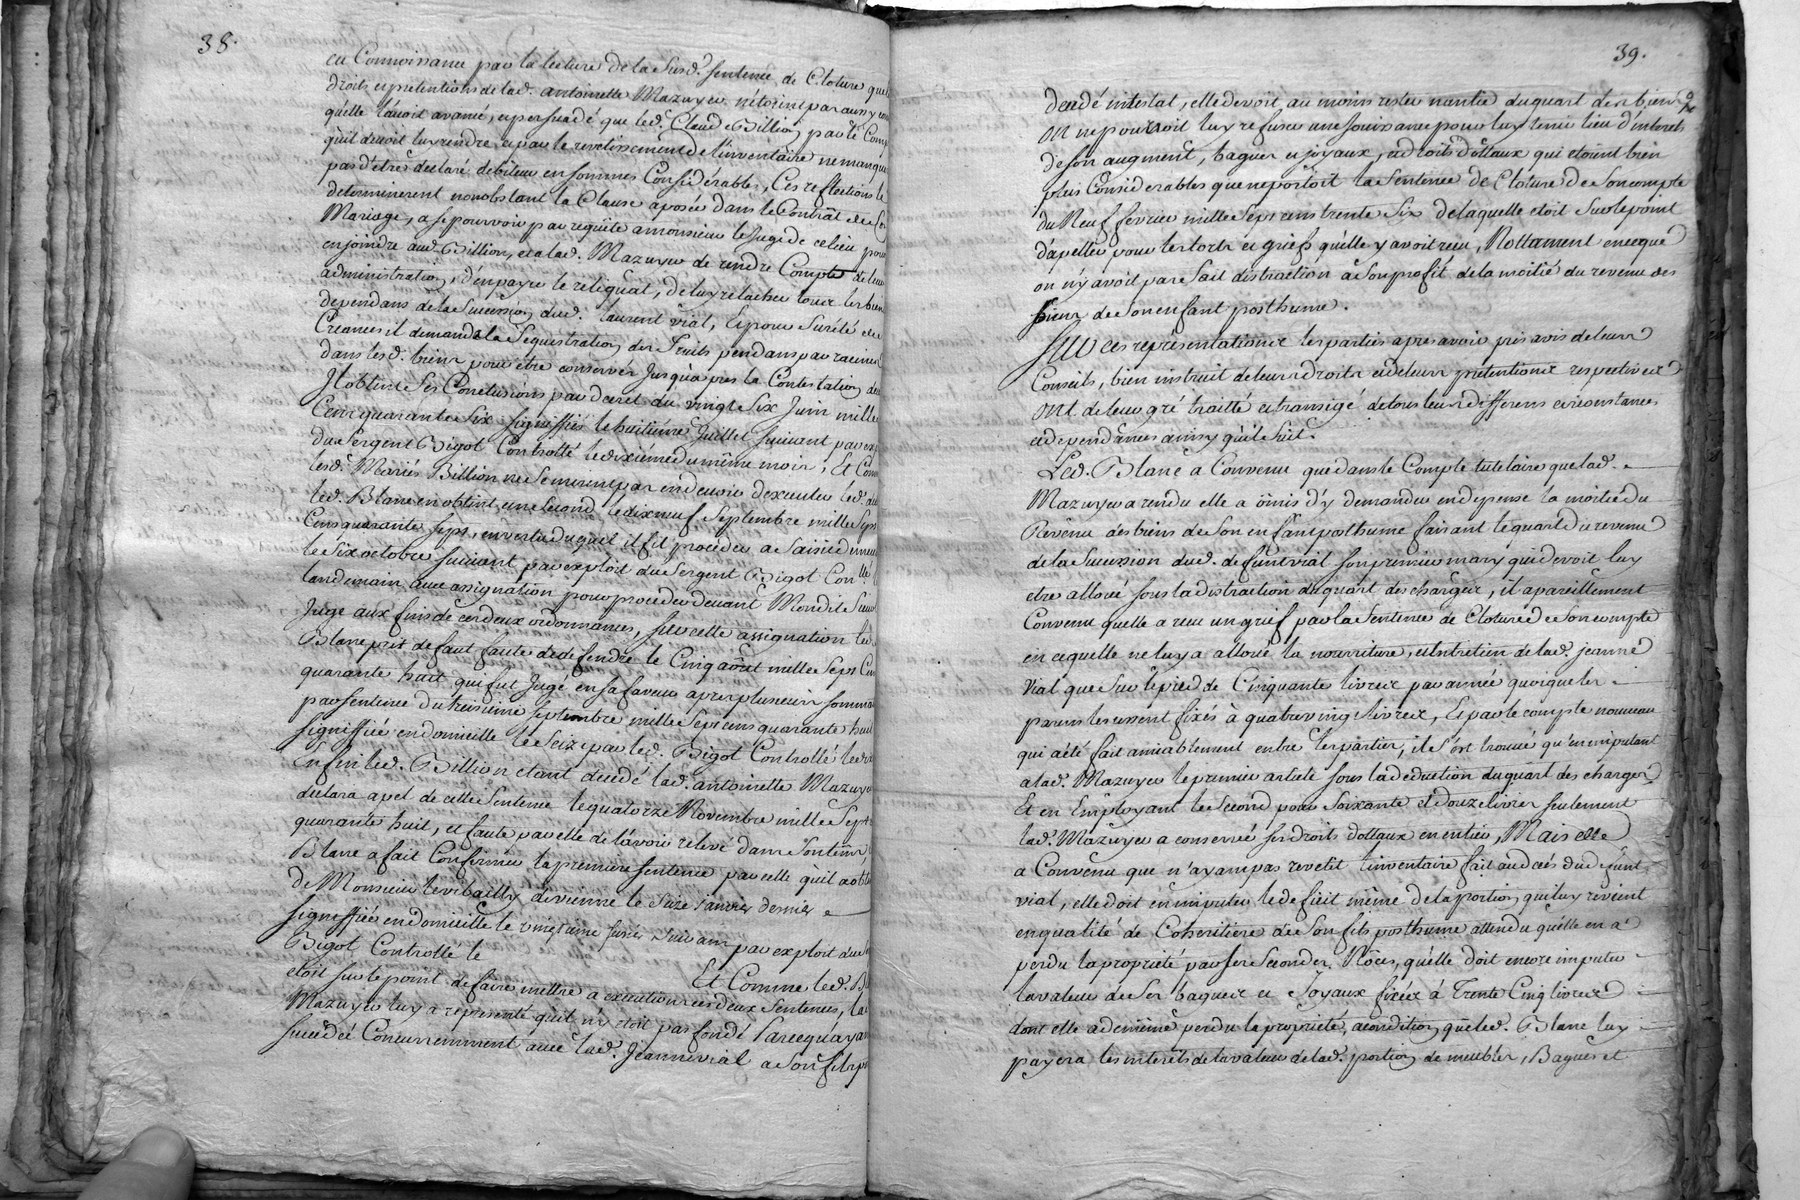 38.
eu Connoissance par la lecture de la Susd. Sentence de Cloture que
droits et pretentions de lad. antoinette Mazuyer n'etoint pas aussy
qu'elle l'avoit avancé, et persuadé que led. Claude Billion, par le Comp
qu'il devoit luy rendre, et par le revetissement de l'inventaire ne manque
pas d'étre declaré debiteur en sommes Considérables, Ces reflections le
determinerent nonobstant la Clause aposée dans le Contrat de Se
Mariage, a se pourvoir par requete a monsieur le Juge de ce lieu pour
enjoindre aud. Billion, et a lad. Mazuyer de rendre Compte de leur
administration, d'en payer le reliquat, de luy relacher tous les bien
dependans de la Sucession dud. laurent vial, Et pour Sureté de
Creances il demanda la Sequestration des fruits pendans par racines
dans lesd. biens pour étre conserver Jusqu'apres la Contestation de
Il obtint Ses Conclusions par decret du vingt Six Juin mille
Cens quarante Six Signiffiés le huitieme Juillet Suivant par exp
du Sergent Bigot Controllé le dixiéme du même mois, Et Com
lesd. Mariés Billion ne Se mirent pas en devoir d'executer led. de
led. Blanc en obtint un Second le dix neuf Septembre mille Sept
Cens quarante Sept, en vertu duquel il fit proceder a Saisie de meu
le Six octobre Suivant par exploit du Sergent Bigot Conllé
landemain avec assignation pour proceder devant Mondit Sieur
Juge aux fins de ces deux ordonnances, Sur cette assignation led.
Blanc prit defaut faute de defendre le Cinq août mille Sept Cen
quarante huit qui fut Jugé en sa faveur apres plusieurs somma
par Sentence du troisiéme Septembre mille Sept cens quarante huit
Signiffiée en domicille le Seize par led. Bigot Controllé le dix
Enfin led. Billion etant decedé lad. antoinette Mazuye
declara apel de cette Sentence le quatorze Novembre mille Sept
quarante huit, et faute par elle de l'avoir relevé dans Son tems,
Blanc a fait Confirmer la premiere Sentence par celle qu'il a obte
De Monsieur le vibailly de vienne le Seize Janvier dernier
Signiffiée en domicille le vingtieme Suivant par exploit dud.
Bigot Controllé le Et Comme led. B
etoit sur le point de faire mettre a execution ces deux Sentences, la
Mazuyer luy a representé qu'il n'y etoit pas fondé Parcequ'ayan
Succedée Concurremment avec lad. Jeanne vial a Son fils p
39.
decedé intestat, elle devoit au moins rester nantie du quart des biens
on ne pouvoit luy refuser une Jouissance pour luy tenir lieu d'interets
de son augment, bagues et joyaux, et droits dottaux qui etoint bien
plus Considerables que ne portoit la Sentence de Cloture de Son compte
du Neuf fevrier mille Sept cens trente Six de laquelle etoit Sur le point
d'apeller pour les torts et griefs qu'elle y avoit reçu, Nottament en ce que
on n'y avoit pas fait distraction a Son profit de la moitié du revenu des
biens de Son enfant posthume.
Sur ces représentations les parties apres avoir pris avis de leurs
Conseils, bien instruit de leurs droits et de leurs pretentions respectives
ont de leur gré traitté et transigé de tous leurs differens circonstances
et dependances ainsy qu'il Suit.
Led. Blanc a Convenu que dans le Compte tutelaire que lad.
Mazuyer a rendu elle a ômis d'y demander en depense la moitié du
Revenu des biens de Son enfant posthume faisant le quart du revenu
de la Sucession dud. defunt vial son premier mary qui devoit luy
etre alloüé sous la distraction du quart des charges, il a pareillement
Convenu quelle a reçu un grief par la Sentence de Cloture de Son compte
en ce quelle ne luy a alloüé la nourriture, et entretien de lad. jeanne
Vial que Sur le pied de Cinquante livres par année quoique les
parens les eussent fixés à quatre vingt livres, Et par le compte nouveau
qui a été fait amiablement entre les parties, il s'est trouvé qu'en imputant
a lad. Mazuyer le premier article sous la deduction du quart des charges
Et en Employant le Second pour Soixante et douze livres seulement
lad. Mazuyer a conservé ses droits dottaux en entier, Mais elle
a Convenu que n'ayant pas revetit l'inventaire fait au decés dud. defunt
vial, elle doit en imputer le deficit même de la portion qui luy revient
en qualité de Coheritiere de Son fils posthume attendu qu'elle en a
perdu la proprieté par ses Secondes Nôces, qu'elle doit encore imputer
la valeur de Ses bagues et Joyaux fixées à Trente Cinq livres
dont elle a de même perdu la proprieté, a condition que led. Blanc luy
payera les interets de la valeur de lad. portion de meubles, Bagues et